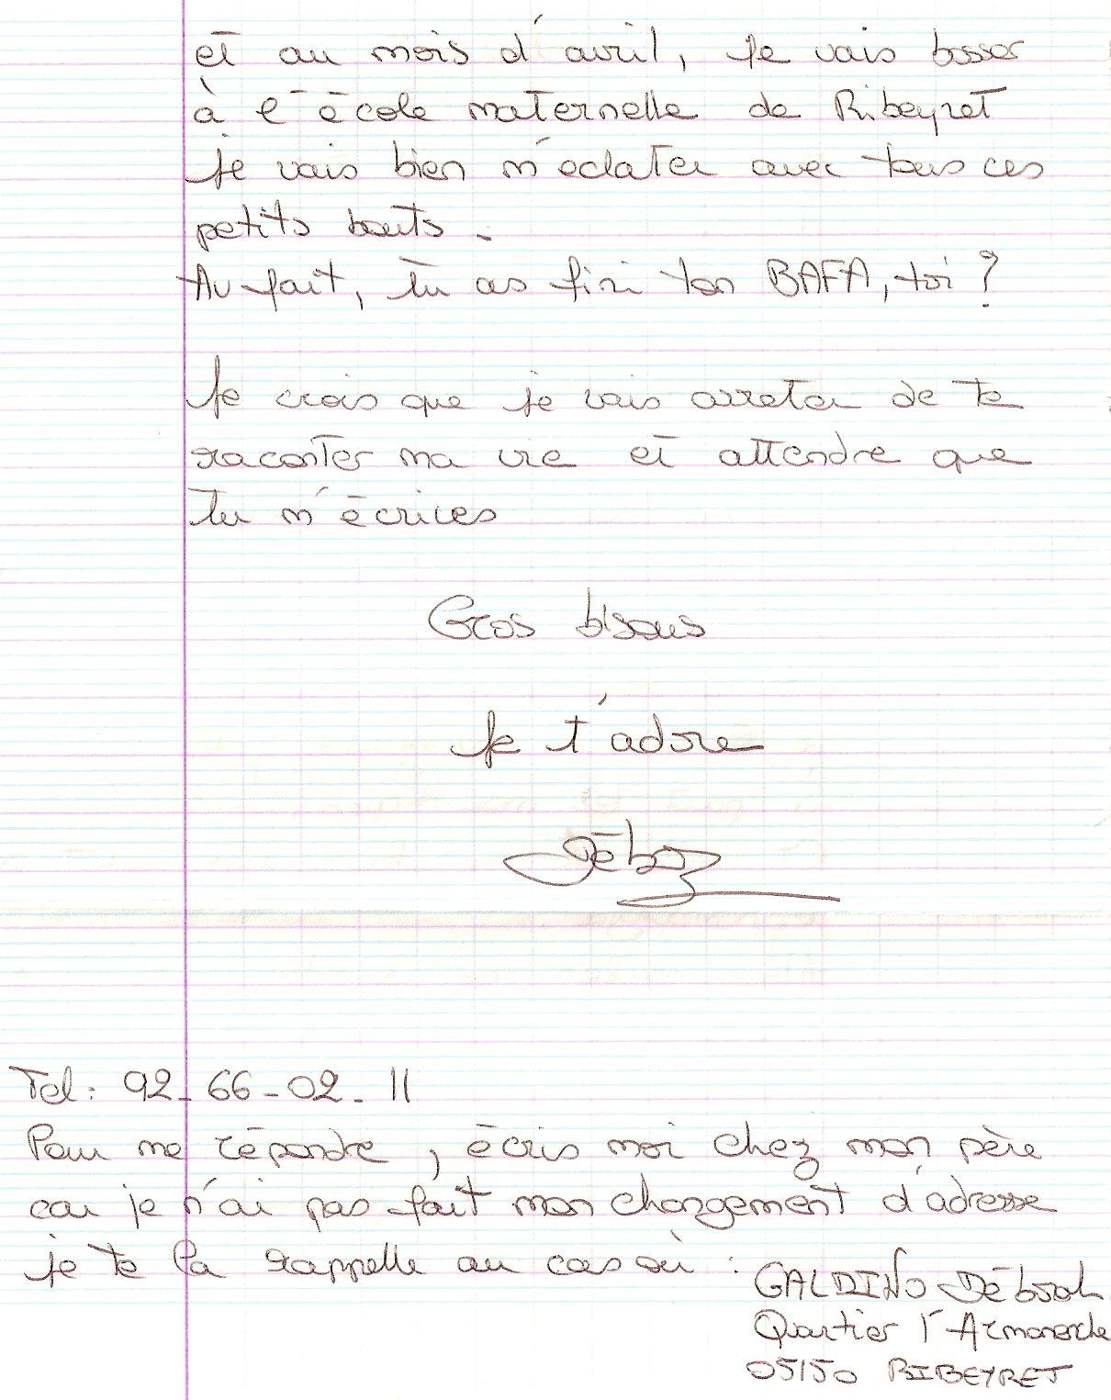 et au mois d'avril, je vais bosser
à l'école maternelle de Ribeyret
je vais bien m'eclater avec tous ces
petits bouts.
Au fait, tu as fini ton BAFA, toi ?
Je crois que je vais arreter de te
raconter ma vie et attendre que
tu m'écrices
Gros bisous
Je t'adore
Débo
Tel: 92-66-02-11
Pour me répondre, écris moi chez mon père
car je n'ai pas fait mon changement d'adresse
je te la rappelle au cas où :
GALDINO Déborah
Quartier l'
05150 RIBEYRET